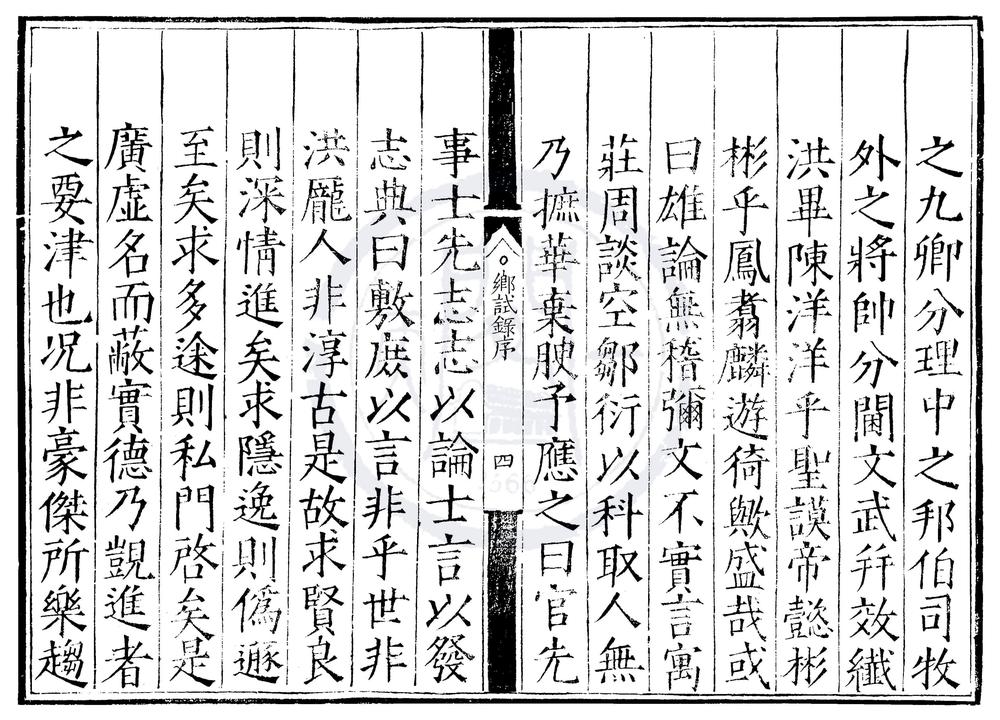 之九卿分理中之邦伯司牧
外之將帥分閫文武幷效纖
洪畢陳洋洋乎聖謨帝懿彬
彬乎鳳翥麟遊猗歟盛哉或
曰雄論無稽彌文不實言寓
莊周談空鄒衍以科取人無
乃摭華棄腴予應之曰官先
鄉試錄序
四
事士先志志以論士言以發
志典曰敷庻以言非乎世非
洪厖人非淳古是故求賢良
則深情進矣求隱逸則僞遯
至矣求多途則私門啓矣是
廣虛名而蔽實德乃覬進者
之要津也况非豪傑所樂趨